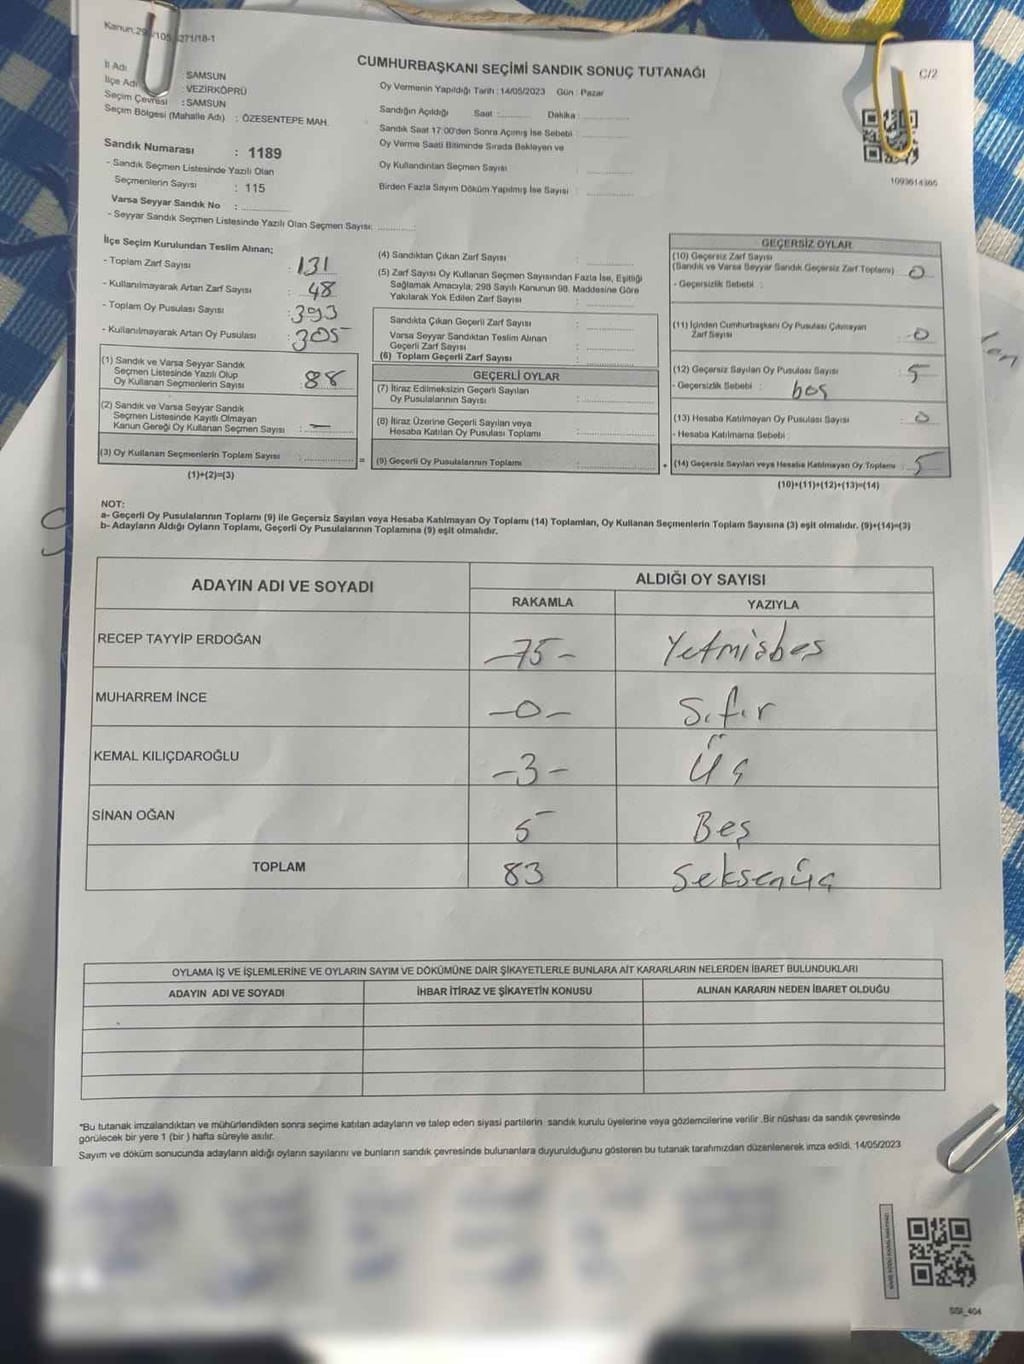 CUMHURBAŞKANI SEÇİMİ SANDIK SONUÇ TUTANAĞI
C/2
İl Adı : SAMSUN
İlçe Adı : VEZİRKÖPRÜ
Seçim Çevresi : SAMSUN
Seçim Bölgesi (Mahalle Adı) : ÖZESENTEPE MAH.
Oy Vermenin Yapıldığı Tarih : 14/05/2023 Gün : Pazar
Sandığın Açıldığı Saat :.......... Dakika :
Sandık Saat 17:00'den Sonra Açılmış İse Sebebi :
Oy Verme Saati Bitiminde Sırada Bekleyen ve
Oy Kullandırılan Seçmen Sayısı :
Birden Fazla Sayım Döküm Yapılmış İse Sayısı :
Sandık Numarası : 1189
- Sandık Seçmen Listesinde Yazılı Olan
Seçmenlerin Sayısı : 115
Varsa Seyyar Sandık No :
- Seyyar Sandık Seçmen Listesinde Yazılı Olan Seçmen Sayısı:
İlçe Seçim Kurulundan Teslim Alınan;
- Toplam Zarf Sayısı : 131
- Kullanılmayarak Artan Zarf Sayısı : 48
- Toplam Oy Pusulası Sayısı : 393
- Kullanılmayarak Artan Oy Pusulası : 305
(1) Sandık ve Varsa Seyyar Sandık
Seçmen Listesinde Yazılı Olup
Oy Kullanan Seçmenlerin Sayısı : 88
(2) Sandık ve Varsa Seyyar Sandık
Seçmen Listesinde Kayıtlı Olmayan
Kanun Gereği Oy Kullanan Seçmen Sayısı : —
(3) Oy Kullanan Seçmenlerin Toplam Sayısı :
(1)+(2)=(3)
(4) Sandıktan Çıkan Zarf Sayısı :
(5) Zarf Sayısı Oy Kullanan Seçmen Sayısından Fazla İse, Eşitliği
Sağlamak Amacıyla; 298 Sayılı Kanunun 98. Maddesine Göre
Yakılarak Yok Edilen Zarf Sayısı :
Sandıkta Çıkan Geçerli Zarf Sayısı :
Varsa Seyyar Sandıktan Teslim Alınan
Geçerli Zarf Sayısı :
(6) Toplam Geçerli Zarf Sayısı :
GEÇERLİ OYLAR
(7) İtiraz Edilmeksizin Geçerli Sayılan
Oy Pusulalarının Sayısı :
(8) İtiraz Üzerine Geçerli Sayılan veya
Hesaba Katılan Oy Pusulası Toplamı :
= (9) Geçerli Oy Pusulalarının Toplamı :
GEÇERSİZ OYLAR
(10) Geçersiz Zarf Sayısı
(Sandık ve Varsa Seyyar Sandık Geçersiz Zarf Toplamı) : 0
- Geçersizlik Sebebi :
(11) İçinden Cumhurbaşkanı Oy Pusulası Çıkmayan
Zarf Sayısı : 0
(12) Geçersiz Sayılan Oy Pusulası Sayısı : 5
- Geçersizlik Sebebi : boş
(13) Hesaba Katılmayan Oy Pusulası Sayısı : 0
- Hesaba Katılmama Sebebi :
+ (14) Geçersiz Sayılan veya Hesaba Katılmayan Oy Toplamı : 5
(10)+(11)+(12)+(13)=(14)
NOT:
a- Geçerli Oy Pusulalarının Toplamı (9) ile Geçersiz Sayılan veya Hesaba Katılmayan Oy Toplamı (14) Toplamları, Oy Kullanan Seçmenlerin Toplam Sayısına (3) eşit olmalıdır. (9)+(14)=(3)
b- Adayların Aldığı Oyların Toplamı, Geçerli Oy Pusulalarının Toplamına (9) eşit olmalıdır.
ADAYIN ADI VE SOYADI
ALDIĞI OY SAYISI
RAKAMLA YAZIYLA
RECEP TAYYİP ERDOĞAN -75- Yetmişbeş
MUHARREM İNCE -0- Sıfır
KEMAL KILIÇDAROĞLU -3- Üç
SİNAN OĞAN 5 Beş
TOPLAM 83 Seksenüç
OYLAMA İŞ VE İŞLEMLERİNE VE OYLARIN SAYIM VE DÖKÜMÜNE DAİR ŞİKAYETLERLE BUNLARA AİT KARARLARIN NELERDEN İBARET BULUNDUKLARI
ADAYIN ADI VE SOYADI İHBAR İTİRAZ VE ŞİKAYETİN KONUSU ALINAN KARARIN NEDEN İBARET OLDUĞU
*Bu tutanak imzalandıktan ve mühürlendikten sonra seçime katılan adayların ve talep eden siyasi partilerin sandık kurulu üyelerine veya gözlemcilerine verilir .Bir nüshası da sandık çevresinde
görülecek bir yere 1 (bir ) hafta süreyle asılır.
Sayım ve döküm sonucunda adayların aldığı oyların sayılarını ve bunların sandık çevresinde bulunanlara duyurulduğunu gösteren bu tutanak tarafımızdan düzenlenerek imza edildi. 14/05/2023